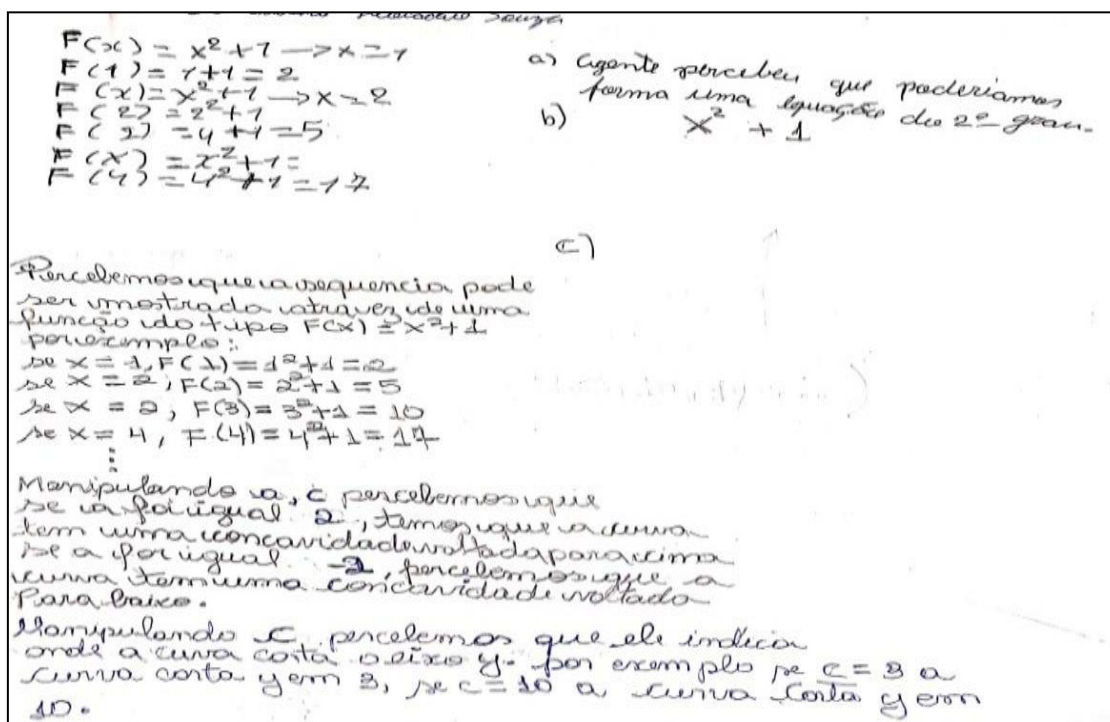 Souza
F(x) = x² + 1 —> x = 1
F(1) = 1 + 1 = 2
F(x) = x² + 1 —> x = 2
F(2) = 2² + 1
F(2) = 4 + 1 = 5
F(x) = x² + 1 =
F(4) = 4² + 1 = 17
a) agente percebeu que poderiamos
forma uma equação do 2º grau.
b) x² + 1
c)
Percebemos que a sequencia pode
ser mostrada atravez de uma
função do tipo F(x) = x² + 1
por exemplo:
se x = 1, F(1) = 1² + 1 = 2
se x = 2; F(2) = 2² + 1 = 5
se x = 2; F(3) = 3² + 1 = 10
se x = 4, F(4) = 4² + 1 = 17
⋮
Manipulando a, c percebemos que
se a for igual 2, temos que a curva
tem uma concavidade voltada para cima
se a for igual -2, percebemos que a
curva tem uma concavidade voltada
Para baixo.
Manipulando C percebemos que ele indica
onde a curva corta o eixo y. por exemplo se c = 3 a
curva corta y em 3, se c = 10 a curva corta y em
10.